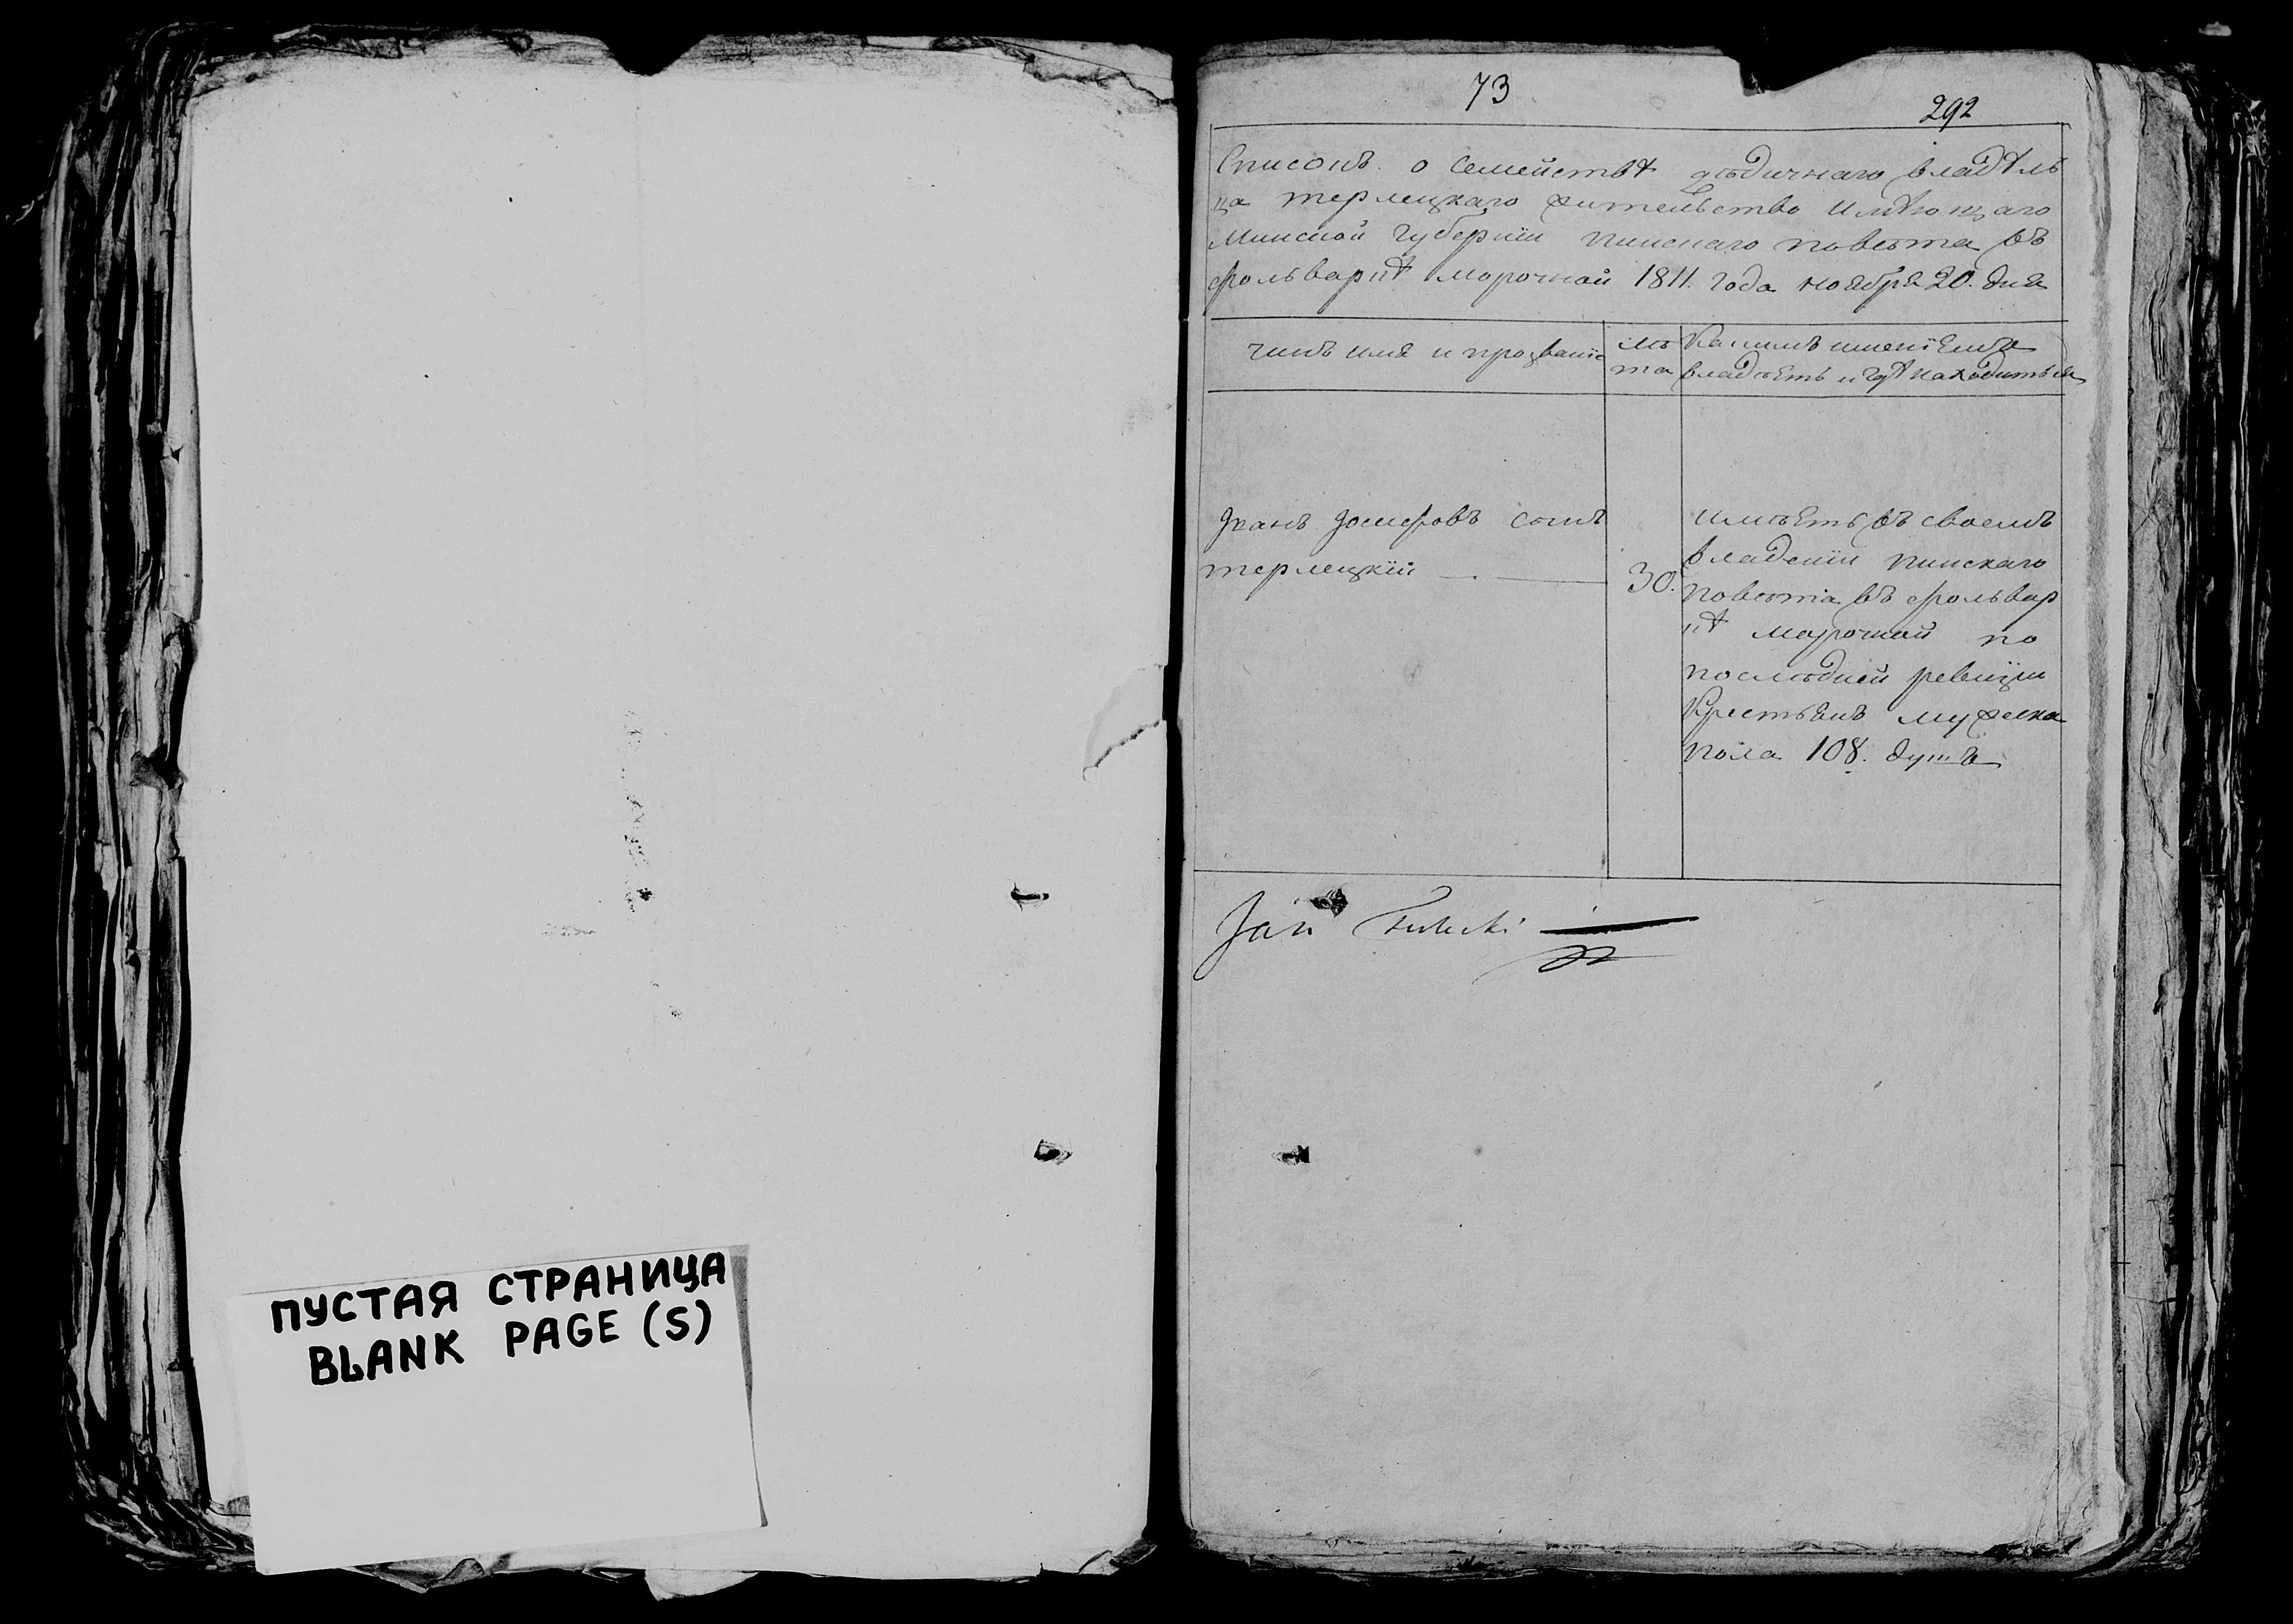 ПУСТАЯ СТРАНИЦА
BLANK PAGE (S)
73
292
Списокъ о семействѣ дѣдичнаго владѣль
ца терлецкаго жительство имѣющаго
Минской губернïи пинскаго повѣта въ
фольваркѣ морочной 1811. года ноября 20. дня
чинъ имя и прозванïе
лѣ
та
Какимъ имѣнïемъ
владѣетъ и гдѣ находиться
Іванъ Іосифовъ сынъ
терлецкïй
30.
имѣетъ въ своемъ
владенïи пинскаго
повѣта въ фольвар
кѣ морочной по
послѣдней ревизïи
Крестьянъ мужеска
пола 108. душъ
Jan Terlecki